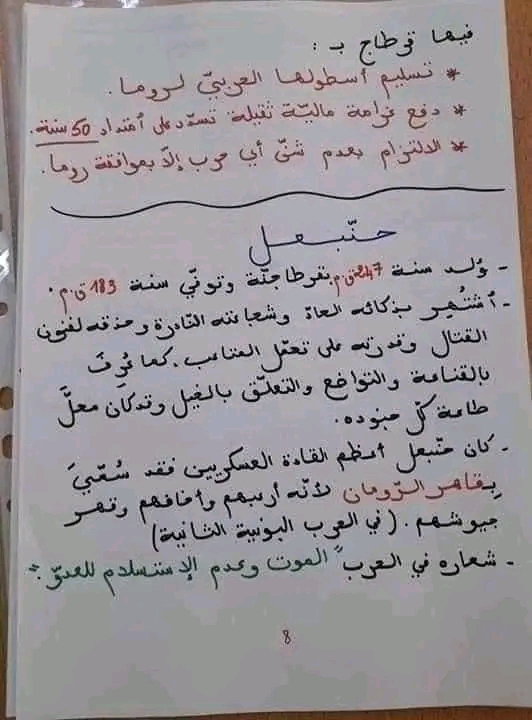 فيها قرطاج بـ :
* تسليم أسطولها الحربيّ لروما.
* دفع غرامة ماليّة ثقيلة تسدّد على امتداد 50 سنة.
* الالتزام بعدم شنّ أي حرب إلّا بموافقة روما.
حنّبعل
- وُلد سنة 247 ق.م بقرطاجنّة وتوفّي سنة 183 ق.م.
- اشتُهِر بذكائه الحادّ وشجاعته النّادرة وحذقه لفنون
القتال وقدرته على تحمّل المتاعب. كما عُرِفَ
بالقناعة والتواضع والتعلّق بالخيل وقد كان محلَّ
طاعة كلّ جنوده.
- كان حنّبعل أعظم القادة العسكريين فقد سُمّيَ
بِقاهر الرّومان لأنّه أرهبهم وأخافهم وقهر
جيوشهم. (في الحرب البونية الثانية)
- شعاره في الحرب "الموت وعدم الإستسلام للعدوّ."
8